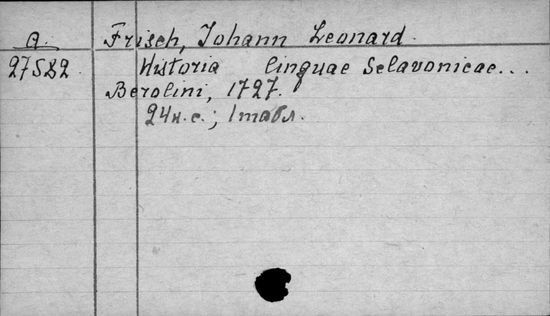 A. Frisch, Johann Leonard.
27582 Historia linguae Sclavonicae...
Berolini, 1727.
24н.с.; 1табл.